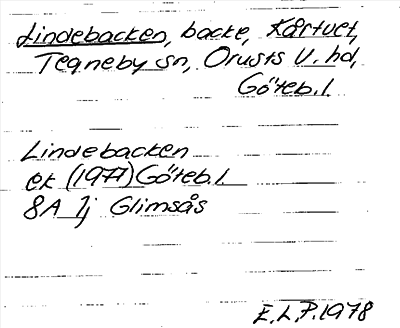 Lindebacken, backe, Kårtvet,
Tegneby sn, Orusts V. hd,
Göteb. l.
Lindebacken
ek (1977) Göteb. l.
8A 1j Glimsås
E.L.P. 1978